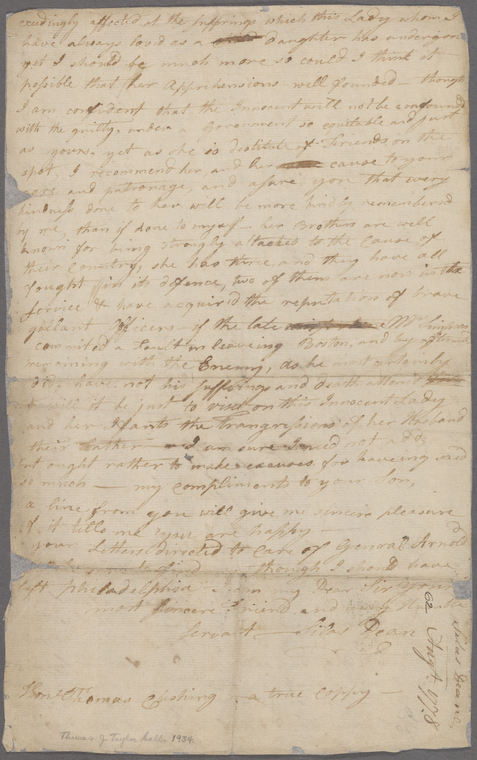 ceedingly affected at the sufferings which this Lady whom I
have always loved as a daughter has undergone
yet I should be much more so could I think it
possible that her Apprehensions well founded — though
I am confident that the Innocent will not be confounded
with the guilty, under a Government so equitable and just
as yours, yet as she is destitute of Friends on the
spot, I recommend her, and her cause to your
care and patronage, and asure you that every
kindness done to her will be more kindly remembered
by me, than if done to myself — her Brothers are well
known for being strongly attached to the Cause of
their Country, she has three and they have all
fought in its defence, two of them are now in the
service & have acquired the reputation of brave
gallant Officers — if the late Mr
commited a fault in leaving Boston, and by afterwards
remaining with the Enemy, as he most certainly
did, have not his sufferings and death attoned
will it be just to visit on this Innocent Lady
and her Infants the transgressions of her Husband
their Father — I am sure I need not add,
but ought rather to make excuses for haveing said
so much — my compliments to your Son,
a line from you will give me sincere pleasure
if it tells me you are happy —
your Letters directed to care of General Arnold
though I should have
left Philadelphia — I am my Dear Sir your
most sincere Friend and very Humble
Servant — Silas Dean
Honl Thomas Cushing — a true coppy —
Silas Deane
Augt 1778
62
Thomas J. Taylor Coll. 1934.